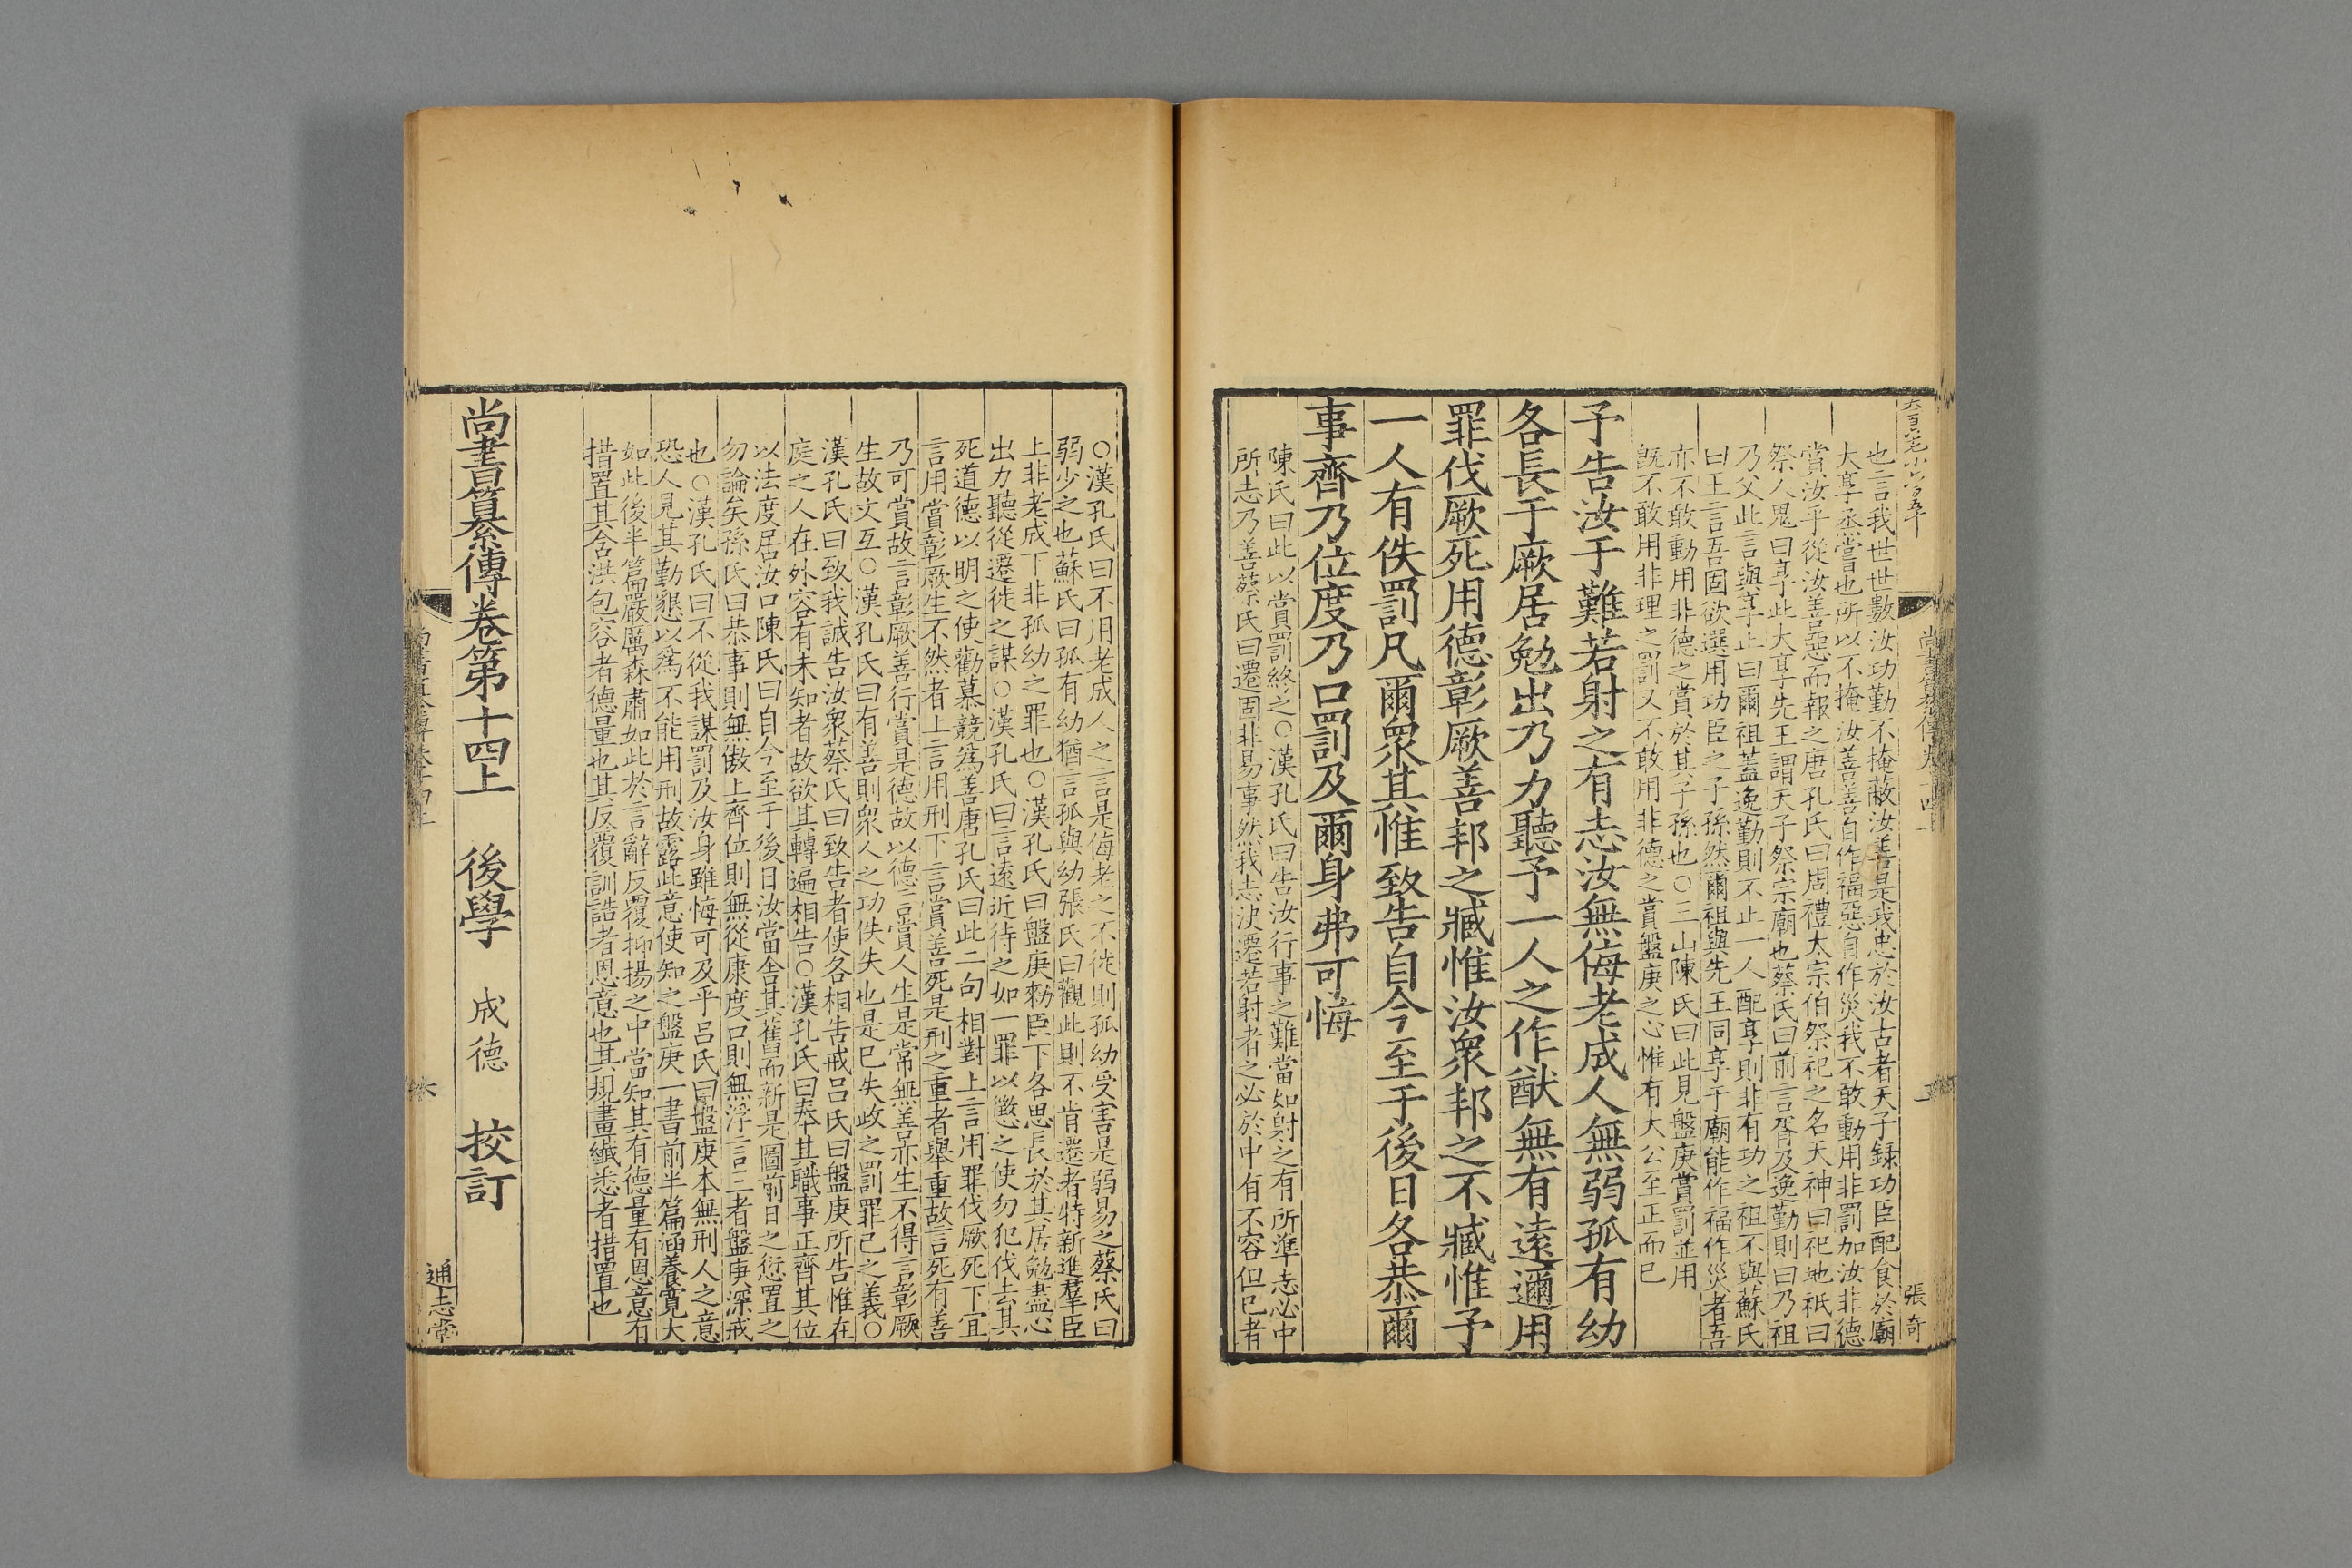 也言我世世數汝功勤不掩蔽汝善是我忠於汝古者天子録功臣配食於廟
大享烝嘗也所以不掩汝善善自作福惡自作災我不敢動用非罰加汝非德
賞汝乎從汝善惡而報之唐孔氏曰周禮大宗伯祭祀之名天神曰祀地祇曰
祭人鬼曰享此大享先王謂天子祭宗廟也蔡氏曰前言胥及逸勤則曰乃祖
乃父此言與享止曰爾祖蓋逸勤則不止一人配享則非有功之祖不與蘇氏
曰王言吾固欲選用功臣之子孫然爾祖與先王同享于廟能作福作災者吾
亦不敢動用非德之賞於其子孫也○三山陳氏曰此見盤庚賞罰並用
既不敢用非理之罰又不敢用非德之賞盤庚之心惟有大公至正而已
予告汝于難若射之有志汝無侮老成人無弱孤有幼
各長于厥居勉出乃力聽予一人之作猷無有遠邇用
罪伐厥死用德彰厥善邦之臧惟汝衆邦之不臧惟予
一人有佚罰凡爾衆其惟致告自今至于後日各恭爾
事齊乃位度乃口罰及爾身弗可悔
陳氏曰此以賞罰終之○漢孔氏曰告汝行事之難當如射之有所準志必中
所志乃善蔡氏曰遷固非易事然我志決遷若射者之必於中有不容但已者
尚書纂傳卷十四上
張奇
○漢孔氏曰不用老成人之言是侮老之不徙則孤幼受害是弱易之蔡氏曰
弱少之也蘇氏曰孤有幼猶言孤與幼張氏曰觀此則不肯遷者特新進羣臣
上非老成下非孤幼之罪也○漢孔氏曰盤庚勑臣下各思長於其居勉盡心
出力聽從遷徙之謀○漢孔氏曰言遠近待之如一罪以懲之使勿犯伐去其
死道德以明之使勸慕競爲善唐孔氏曰此二句相對上言用罪伐厥死下宜
言用賞彰厥生不然者上言用刑下言賞善死是刑之重者舉重故言死有善
乃可賞故言彰厥善行賞是德故以德言賞人生是常無善亦生不得言彰厥
生故文互○漢孔氏曰有善則衆人之功佚失也是已失政之罰罪己之義○
漢孔氏曰致我誠告汝衆蔡氏曰致告者使各相告戒吕氏曰盤庚所告惟在
庭之人在外容有未知者故欲其轉遍相告○漢孔氏曰奉其職事正齊其位
以法度居汝口陳氏曰自今至于後日汝當舍其舊而新是圖前日之愆置之
勿論矣孫氏曰恭事則無傲上齊位則無從康度口則無浮言三者盤庚深戒
也○漢孔氏曰不從我謀罰及汝身雖悔可及乎吕氏曰盤庚本無刑人之意
恐人見其勤懇以爲不能用刑故露此意使知之盤庚一書前半篇涵養寬大
如此後半篇嚴厲森肅如此於言辭反覆抑揚之中當知其有德量有恩意有
措置其含洪包容者德量也其反覆訓誥者恩意也其規畫纖悉者措置也
尚書纂傳卷第十四上 後學 成德 挍訂
六
通志堂